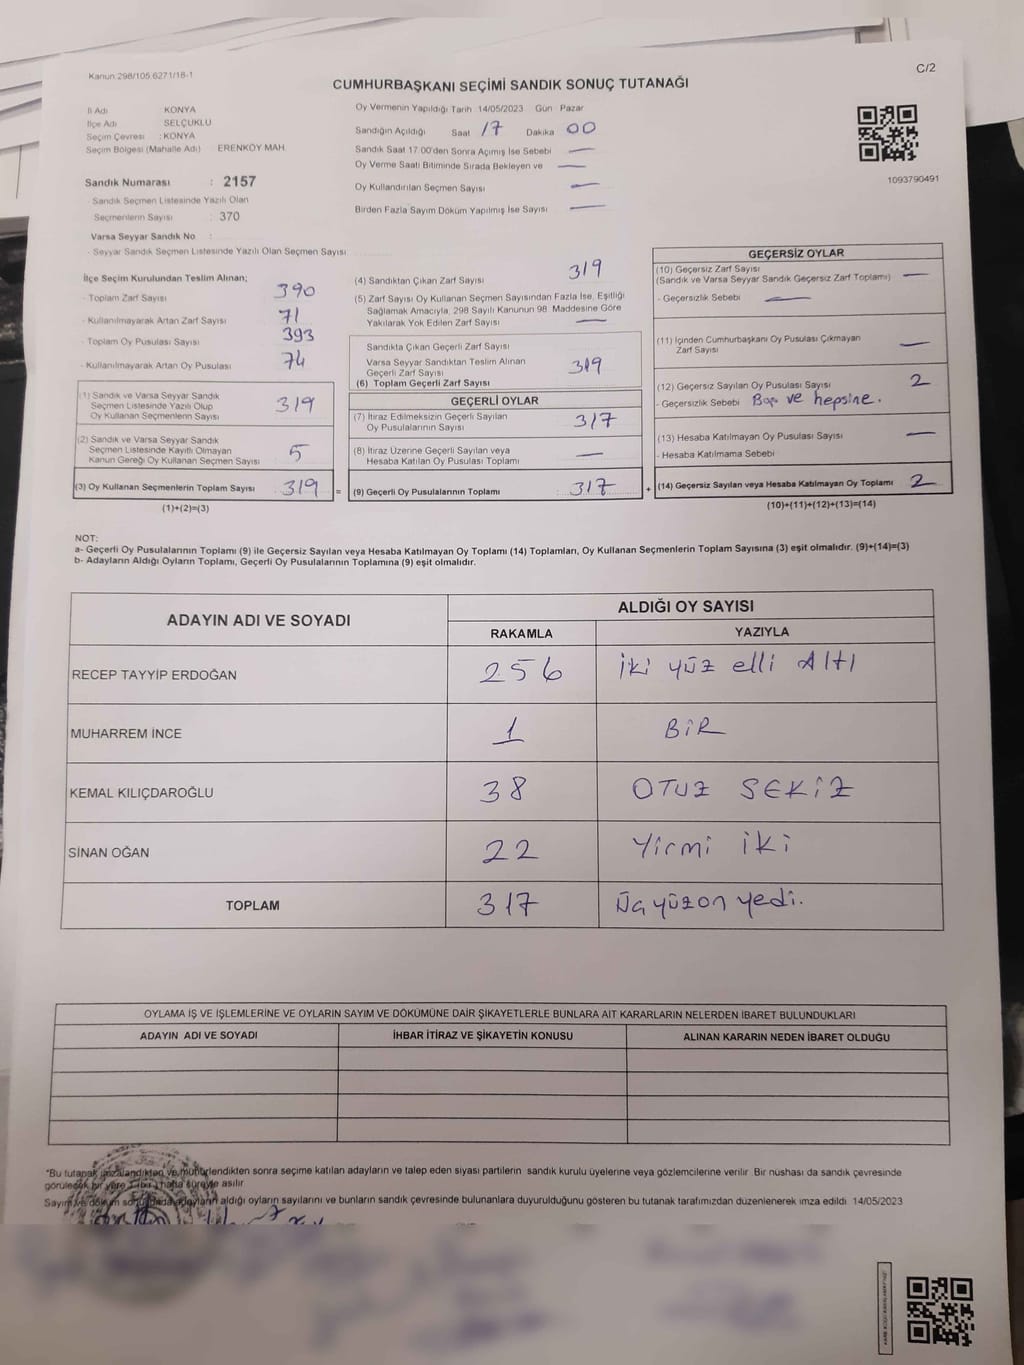 Kanun 298/105 6271/18-1
C/2
CUMHURBAŞKANI SEÇİMİ SANDIK SONUÇ TUTANAĞI
İl Adı KONYA
İlçe Adı SELÇUKLU
Seçim Çevresi : KONYA
Seçim Bölgesi (Mahalle Adı) ERENKÖY MAH
Sandık Numarası : 2157
- Sandık Seçmen Listesinde Yazılı Olan
Seçmenlerin Sayısı : 370
Varsa Seyyar Sandık No :
- Seyyar Sandık Seçmen Listesinde Yazılı Olan Seçmen Sayısı
Oy Vermenin Yapıldığı Tarih 14/05/2023 Gün Pazar
Sandığın Açıldığı Saat 17 Dakika 00
Sandık Saat 17.00'den Sonra Açımış İse Sebebi —
Oy Verme Saati Bitiminde Sırada Bekleyen ve —
Oy Kullandırılan Seçmen Sayısı —
Birden Fazla Sayım Döküm Yapılmış İse Sayısı —
1093790491
İlçe Seçim Kurulundan Teslim Alınan;
- Toplam Zarf Sayısı 390
- Kullanılmayarak Artan Zarf Sayısı 71
- Toplam Oy Pusulası Sayısı 393
- Kullanılmayarak Artan Oy Pusulası 74
(1) Sandık ve Varsa Seyyar Sandık
Seçmen Listesinde Yazılı Olup
Oy Kullanan Seçmenlerin Sayısı 319
(2) Sandık ve Varsa Seyyar Sandık
Seçmen Listesinde Kayıtlı Olmayan
Kanun Gereği Oy Kullanan Seçmen Sayısı 5
(3) Oy Kullanan Seçmenlerin Toplam Sayısı 319 =
(1)+(2)=(3)
(4) Sandıktan Çıkan Zarf Sayısı 319
(5) Zarf Sayısı Oy Kullanan Seçmen Sayısından Fazla İse, Eşitliği
Sağlamak Amacıyla, 298 Sayılı Kanunun 98. Maddesine Göre
Yakılarak Yok Edilen Zarf Sayısı —
Sandıkta Çıkan Geçerli Zarf Sayısı
Varsa Seyyar Sandıktan Teslim Alınan
Geçerli Zarf Sayısı 319
(6) Toplam Geçerli Zarf Sayısı
GEÇERLİ OYLAR
(7) İtiraz Edilmeksizin Geçerli Sayılan
Oy Pusulalarının Sayısı 317
(8) İtiraz Üzerine Geçerli Sayılan veya
Hesaba Katılan Oy Pusulası Toplamı —
(9) Geçerli Oy Pusulalarının Toplamı : 317 +
GEÇERSİZ OYLAR
(10) Geçersiz Zarf Sayısı
(Sandık ve Varsa Seyyar Sandık Geçersiz Zarf Toplamı) —
- Geçersizlik Sebebi —
(11) İçinden Cumhurbaşkanı Oy Pusulası Çıkmayan
Zarf Sayısı —
(12) Geçersiz Sayılan Oy Pusulası Sayısı 2
- Geçersizlik Sebebi ve hepsine.
(13) Hesaba Katılmayan Oy Pusulası Sayısı —
- Hesaba Katılmama Sebebi
(14) Geçersiz Sayılan veya Hesaba Katılmayan Oy Toplamı 2
(10)+(11)+(12)+(13)=(14)
NOT:
a- Geçerli Oy Pusulalarının Toplamı (9) ile Geçersiz Sayılan veya Hesaba Katılmayan Oy Toplamı (14) Toplamları, Oy Kullanan Seçmenlerin Toplam Sayısına (3) eşit olmalıdır. (9)+(14)=(3)
b- Adayların Aldığı Oyların Toplamı, Geçerli Oy Pusulalarının Toplamına (9) eşit olmalıdır.
ADAYIN ADI VE SOYADI
ALDIĞI OY SAYISI
RAKAMLA YAZIYLA
RECEP TAYYİP ERDOĞAN 256 iki yüz elli Altı
MUHARREM İNCE 1 BİR
KEMAL KILIÇDAROĞLU 38 OTUZ SEKİZ
SİNAN OĞAN 22 Yirmi iki
TOPLAM 317 Üçyüzon yedi.
OYLAMA İŞ VE İŞLEMLERİNE VE OYLARIN SAYIM VE DÖKÜMÜNE DAİR ŞİKAYETLERLE BUNLARA AİT KARARLARIN NELERDEN İBARET BULUNDUKLARI
ADAYIN ADI VE SOYADI İHBAR İTİRAZ VE ŞİKAYETİN KONUSU ALINAN KARARIN NEDEN İBARET OLDUĞU
*Bu tutanak imzalandıkten ve mühürlendikten sonra seçime katılan adayların ve talep eden siyası partilerin sandık kurulu üyelerine veya gözlemcilerine verilir. Bir nushası da sandık çevresinde
görülecek bir yere 1 (bir) hafta süreyle asılır
Sayım ve döküm sonunda adayların aldığı oyların sayılarını ve bunların sandık çevresinde bulunanlara duyurulduğunu gösteren bu tutanak tarafımızdan düzenlenerek imza edildi. 14/05/2023